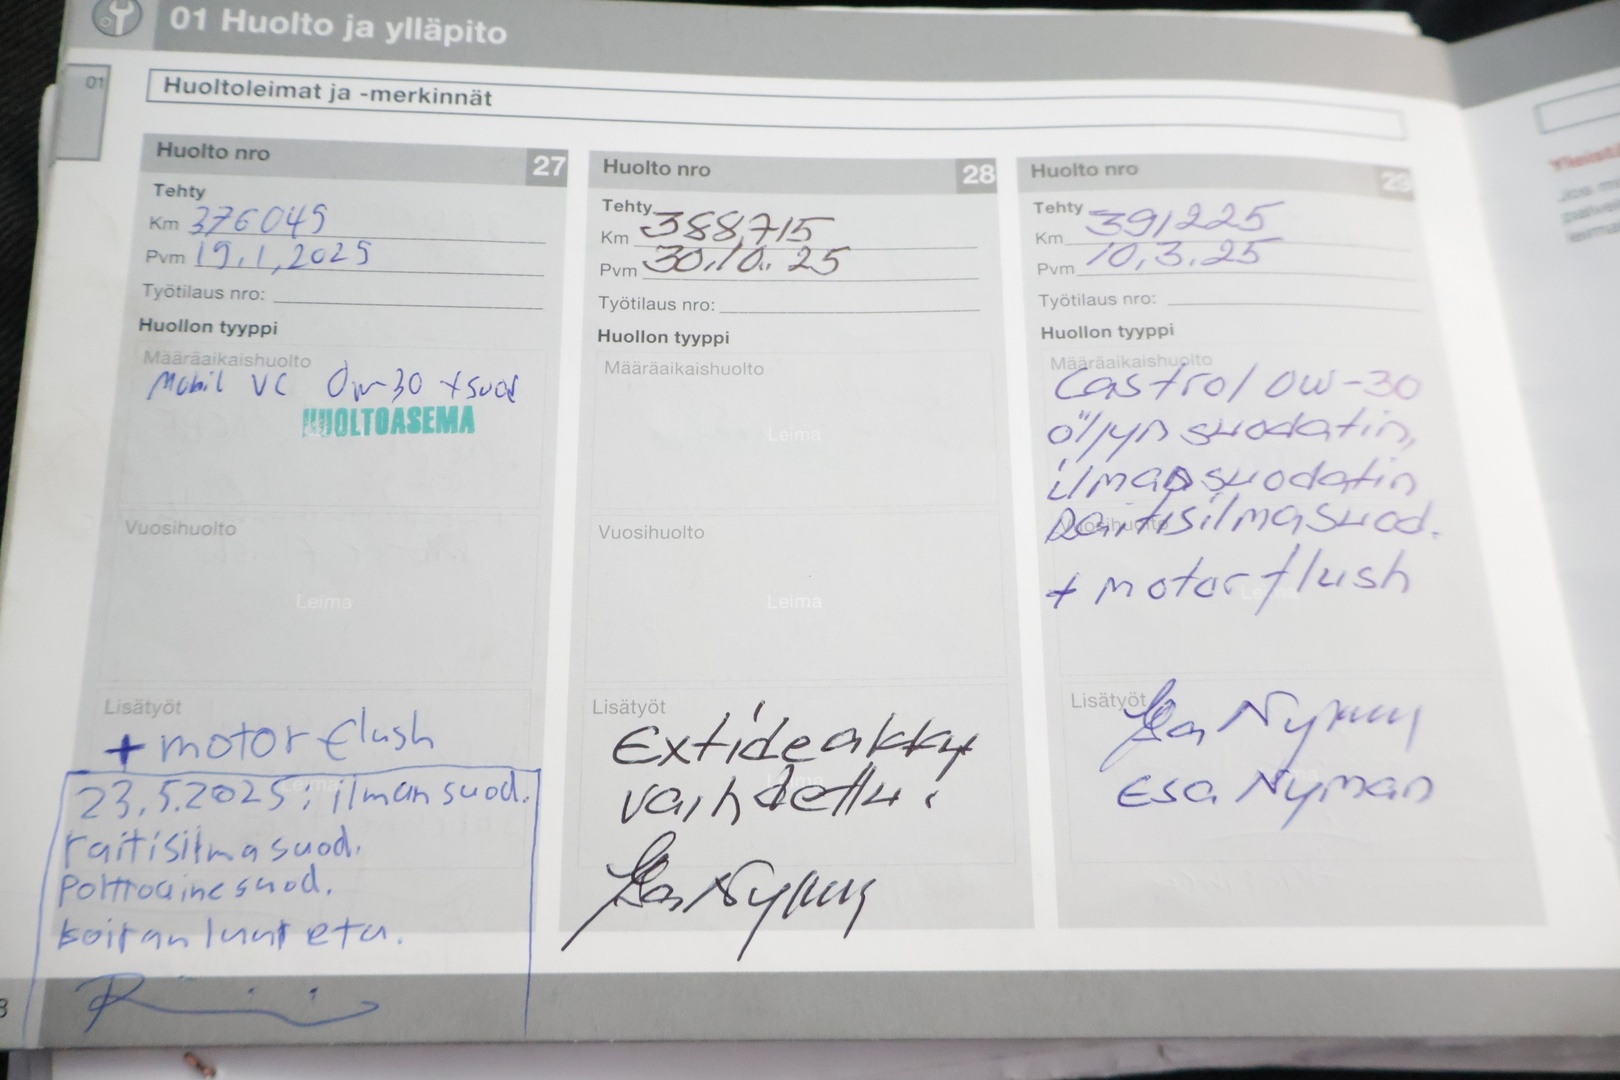 01 Huolto ja ylläpito
01
Huoltoleimat ja -merkinnät
Huolto nro 27
Tehty
Km 376049
Pvm 19.1.2025
Työtilaus nro:
Huollon tyyppi
Määräaikaishuolto
Mobil VC 0w-30 +suod
HUOLTOASEMA
Vuosihuolto
Leima
Lisätyöt
+ motor flush
Leima
23.5.2025; ilman suod.
raitisilma suod.
Polttoaine suod.
koiran luut etu.
Huolto nro 28
Tehty
Km 388,715
Pvm 30.10.. 25
Työtilaus nro:
Huollon tyyppi
Määräaikaishuolto
Leima
Vuosihuolto
Leima
Lisätyöt
Extide akku
vaihdettu.
Huolto nro 29
Tehty
Km 391225
Pvm 10.3.25
Työtilaus nro:
Huollon tyyppi
Määräaikaishuolto
Castrol 0w-30
öljyn suodatin,
ilman suodatin
Vuosihuolto
Raitisilmasuod.
+ motor flush
Leima
Lisätyöt
Esa Nyman